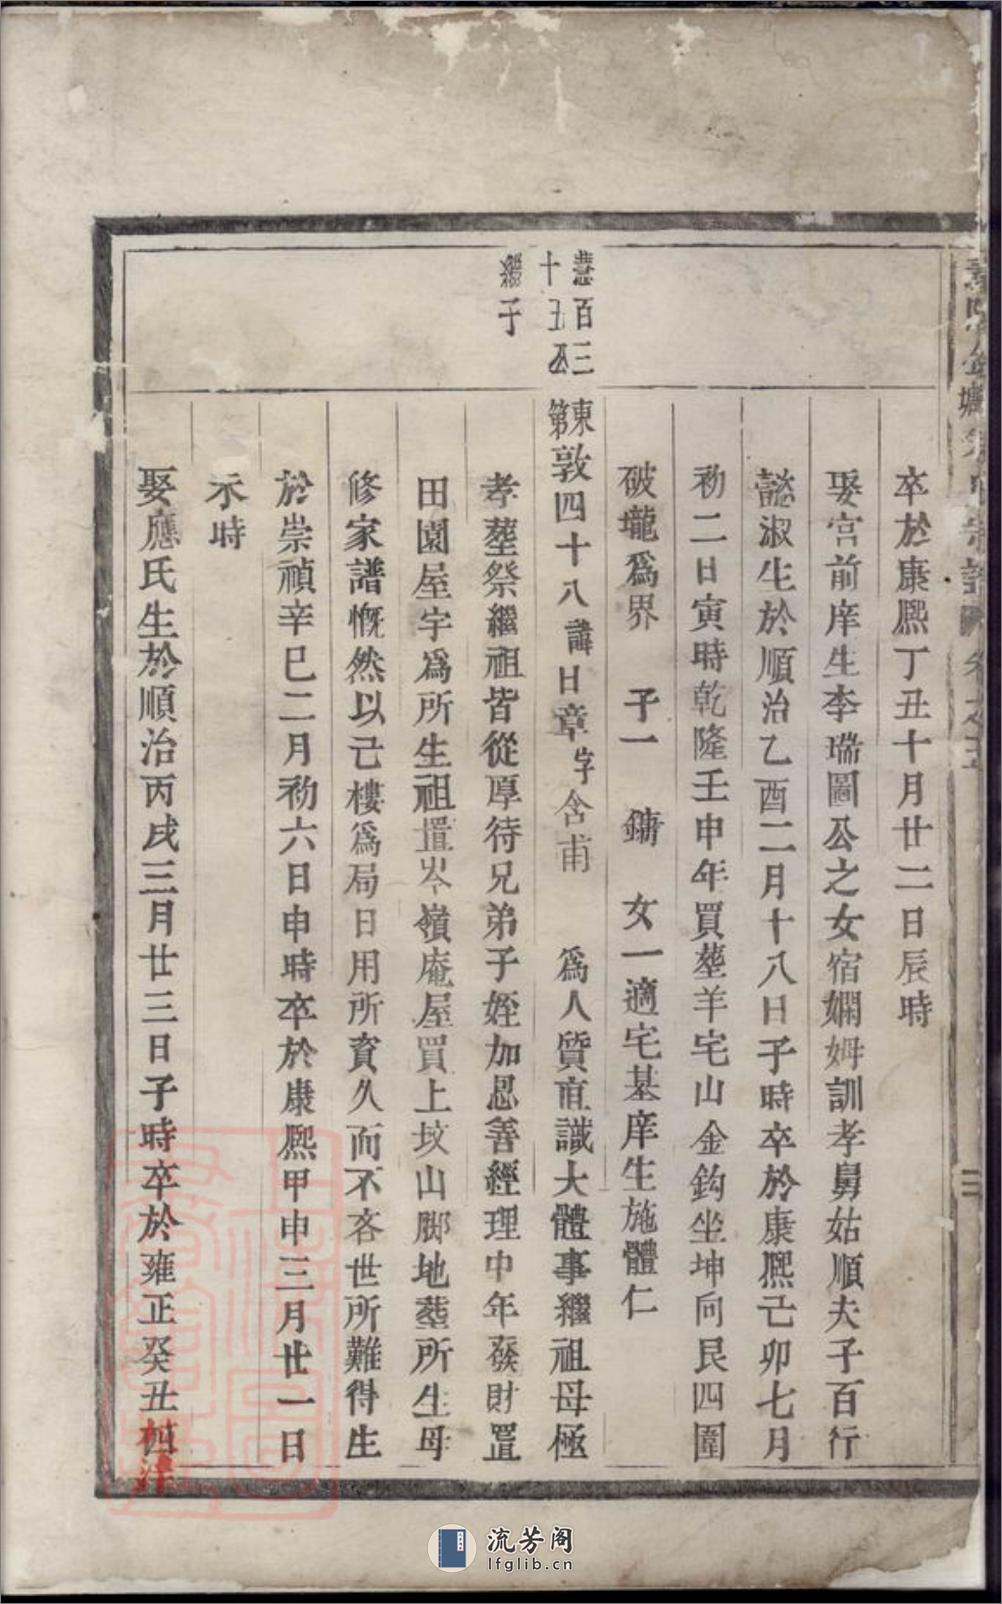 卒於康熙丁丑十月廿二日辰時
娶宮前庠生李瑞圖公之女宿嫻姆訓孝舅姑順夫子百行
懿淑生於順治乙酉二月十八日子時卒於康熙己卯七月
初二日寅時乾隆壬申年買塟羊宅山金鈎坐坤向艮四圍
破壠爲界　子一　鏞　女一適宅基庠生施體仁
慧百三
十五公
繼子
東
第
敦四十八諱日章字含甫　爲人質直識大體事繼祖母極
孝塟祭繼祖皆從厚待兄弟子姪加恩善經理中年發財置
田園屋宇爲所生祖置岑嶺庵屋買上坟山脚地塟所生母
修家譜慨然以己樓爲局日用所資久而不吝世所難得生
於崇禎辛巳二月初六日申時卒於康熙甲申三月廿一日
未時
娶應氏生於順治丙戌三月廿三日子時卒於雍正癸丑
宗譜 卷之
流芳阁
lfglib.cn